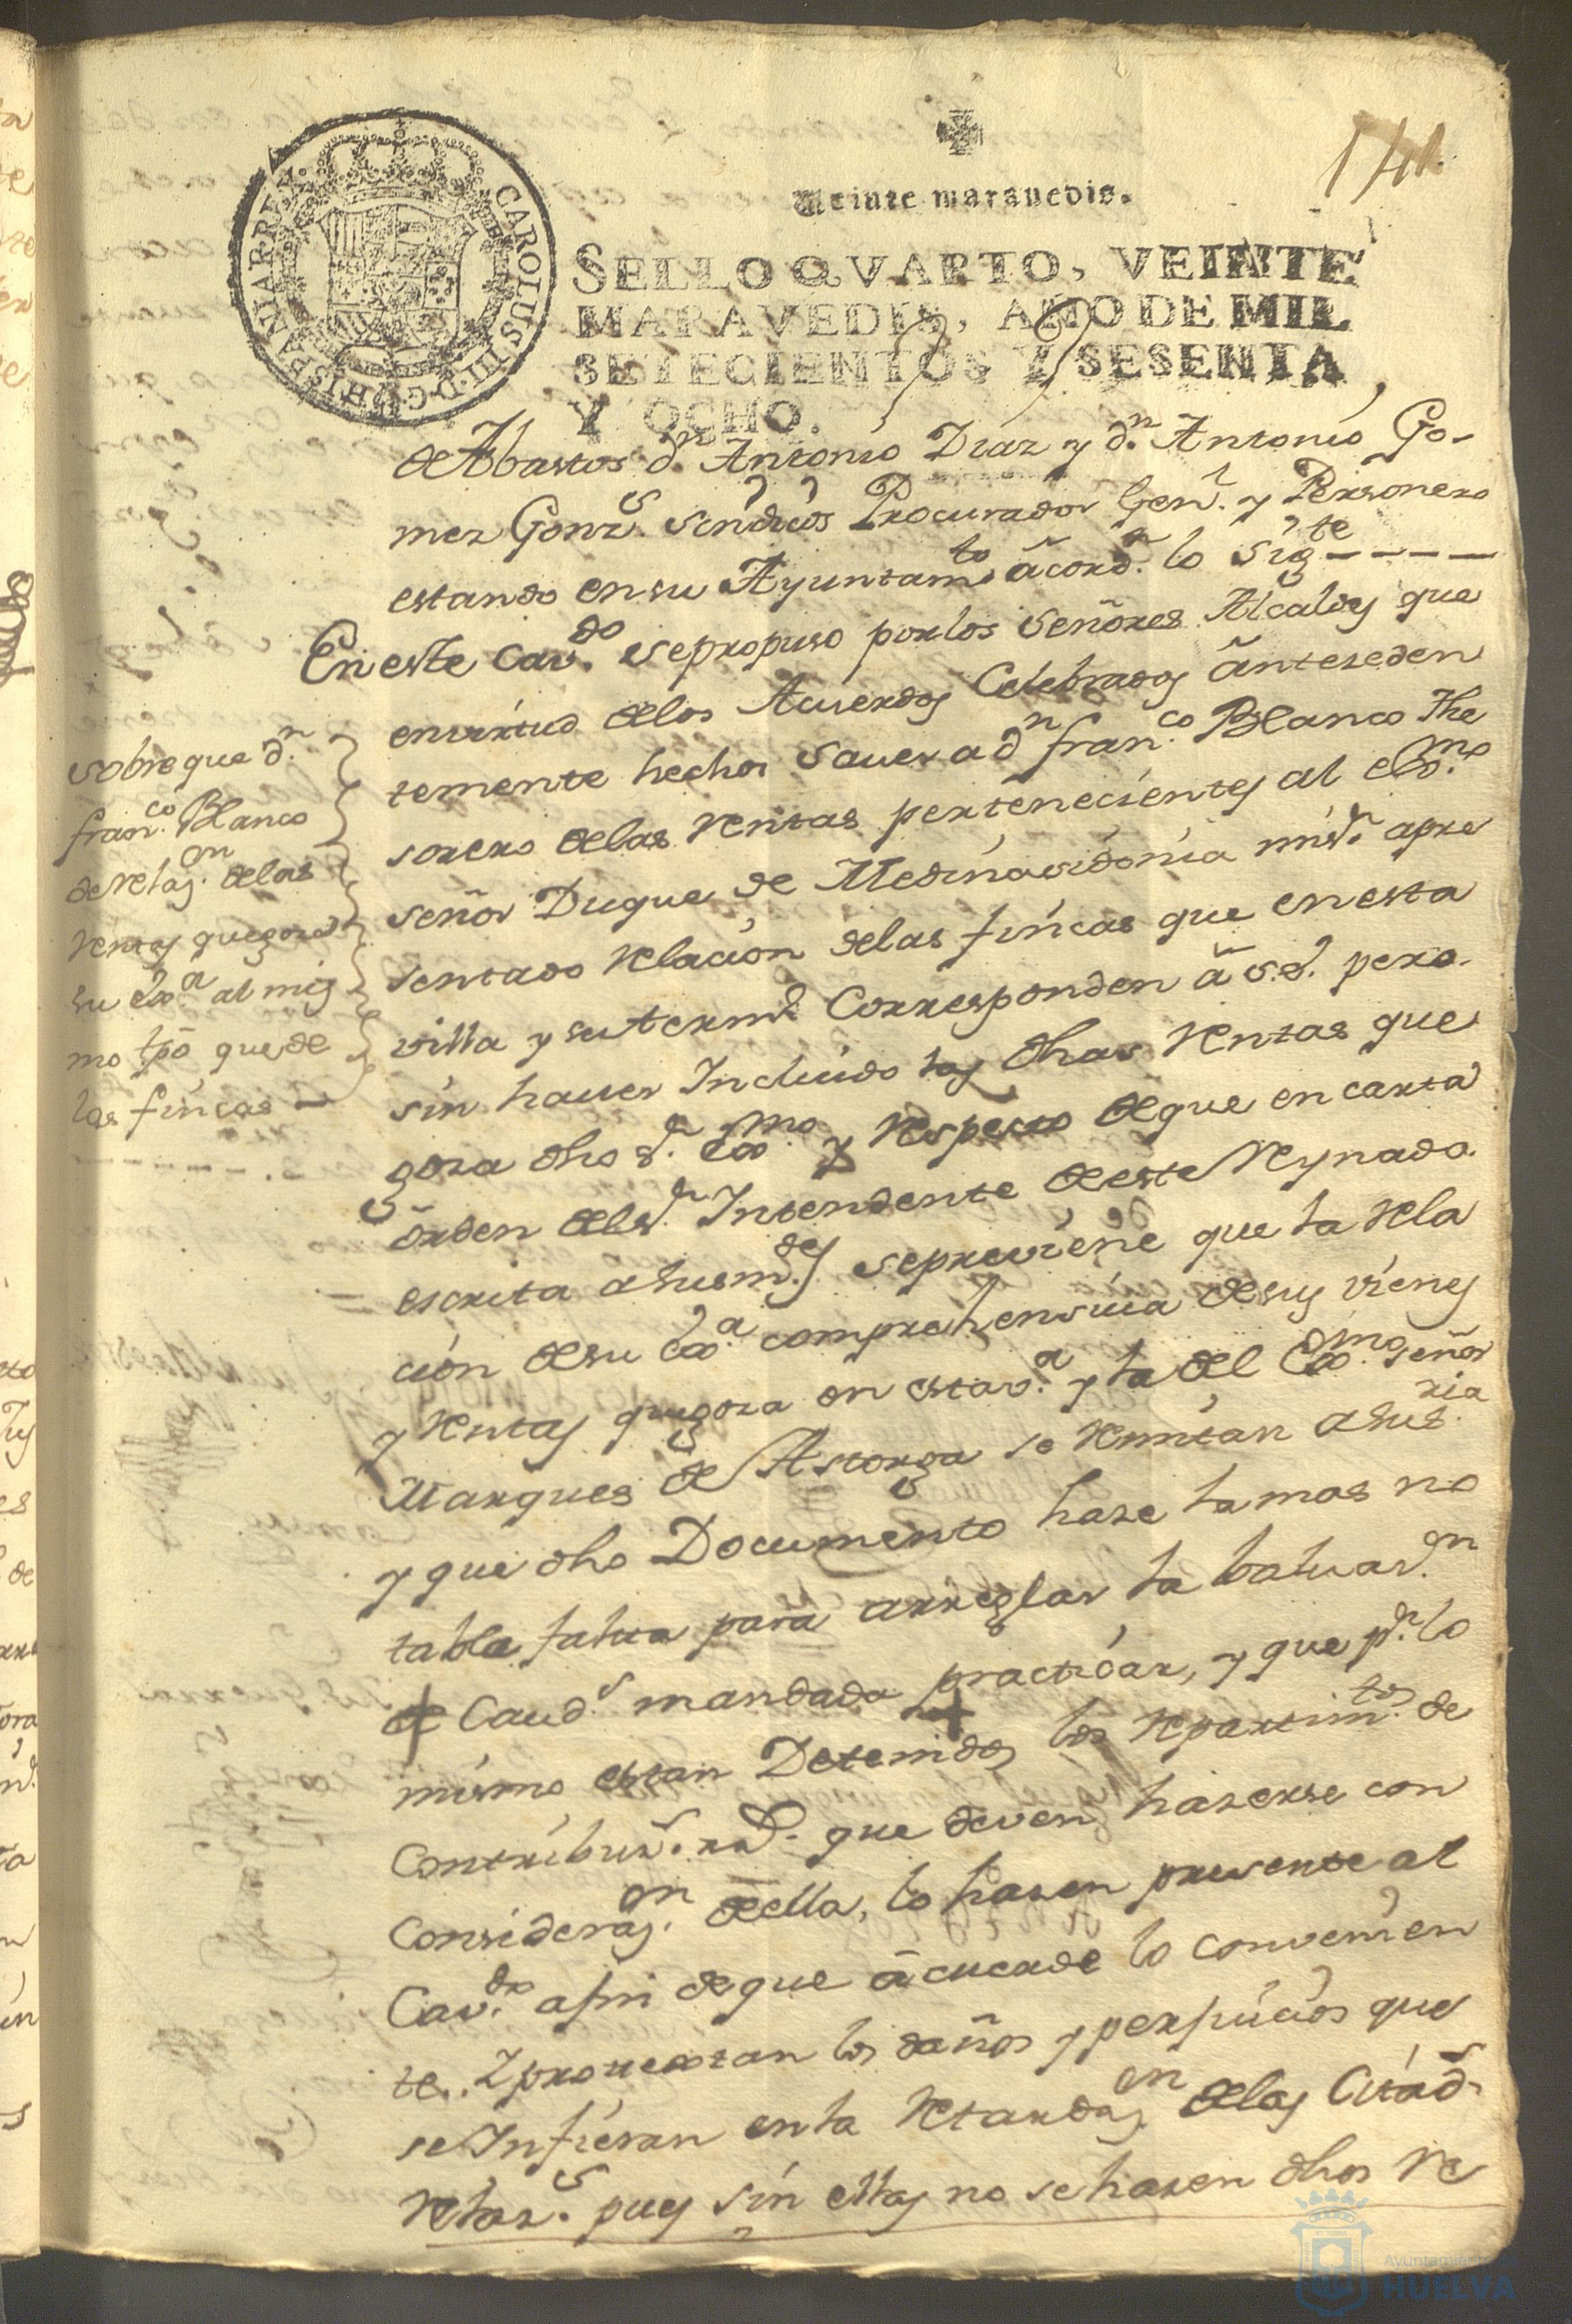 141
Veinte maravedis.
CAROLUS III. D. G. HISPANIAR. REX
SELLO QVARTO, VEINTE
MARAVEDIS, AÑO DE MIL
SETECIENTOS Y SESENTA
Y OCHO.
de Abastos dn. Antonio Diaz y dn. Antonio Go-
mez Gonzs. sindicos Procurador Genl. y Personero
estando en su Ayuntamto. ãcordn. lo sigte ----
En este Cavdo. se propuso por los señores Alcaldes que
en virtud de los Acuerdos Celebrados ãnteseden
temente hechos saver a dn franco. Blanco The
sorero de las Rentas pertenecientes al exmo.
señor Duque de Medinasidonia mi sr. apre
sentado Relacion de las fincas que en esta
villa y su termo. Corresponden ã s.e. pero
sin haver Incluido las dhas Rentas que
goza dho sr. exmo. y Respecto de que en carta
õrden del sr. Intendente de este Reynado
escrita a sus mdes. se previene que la Rela
cion de su exa. comprehensiva de sus vienes
y Rentas que goza en esta va. y la del Exmo. señor
Marques de Astorga se Remitan a su sria.
y que dho Documento haze la mas no
table falta para arreglar la baluason.
de Cauds. mandada practicar, y que pr. lo
mismo estan Detenidos los Repartimtos. de
Contribuzs. rs. que deven hazerse con
Considerazon. de ella, lo hazen presente al
Cavdo. a fin de que ãcuerde lo convenien
te. I protextan los daños y perjuicios que
se Infieran en la Retardazon. de las Citads.
Relazs. pues sin ellas no se hazen dhos Re
sobre que dn.
franco. Blanco
de relazon. de las
Rentas que goza
su exa. al mis
mo tpõ que de
las fincas —
Ayuntamiento de
HUELVA